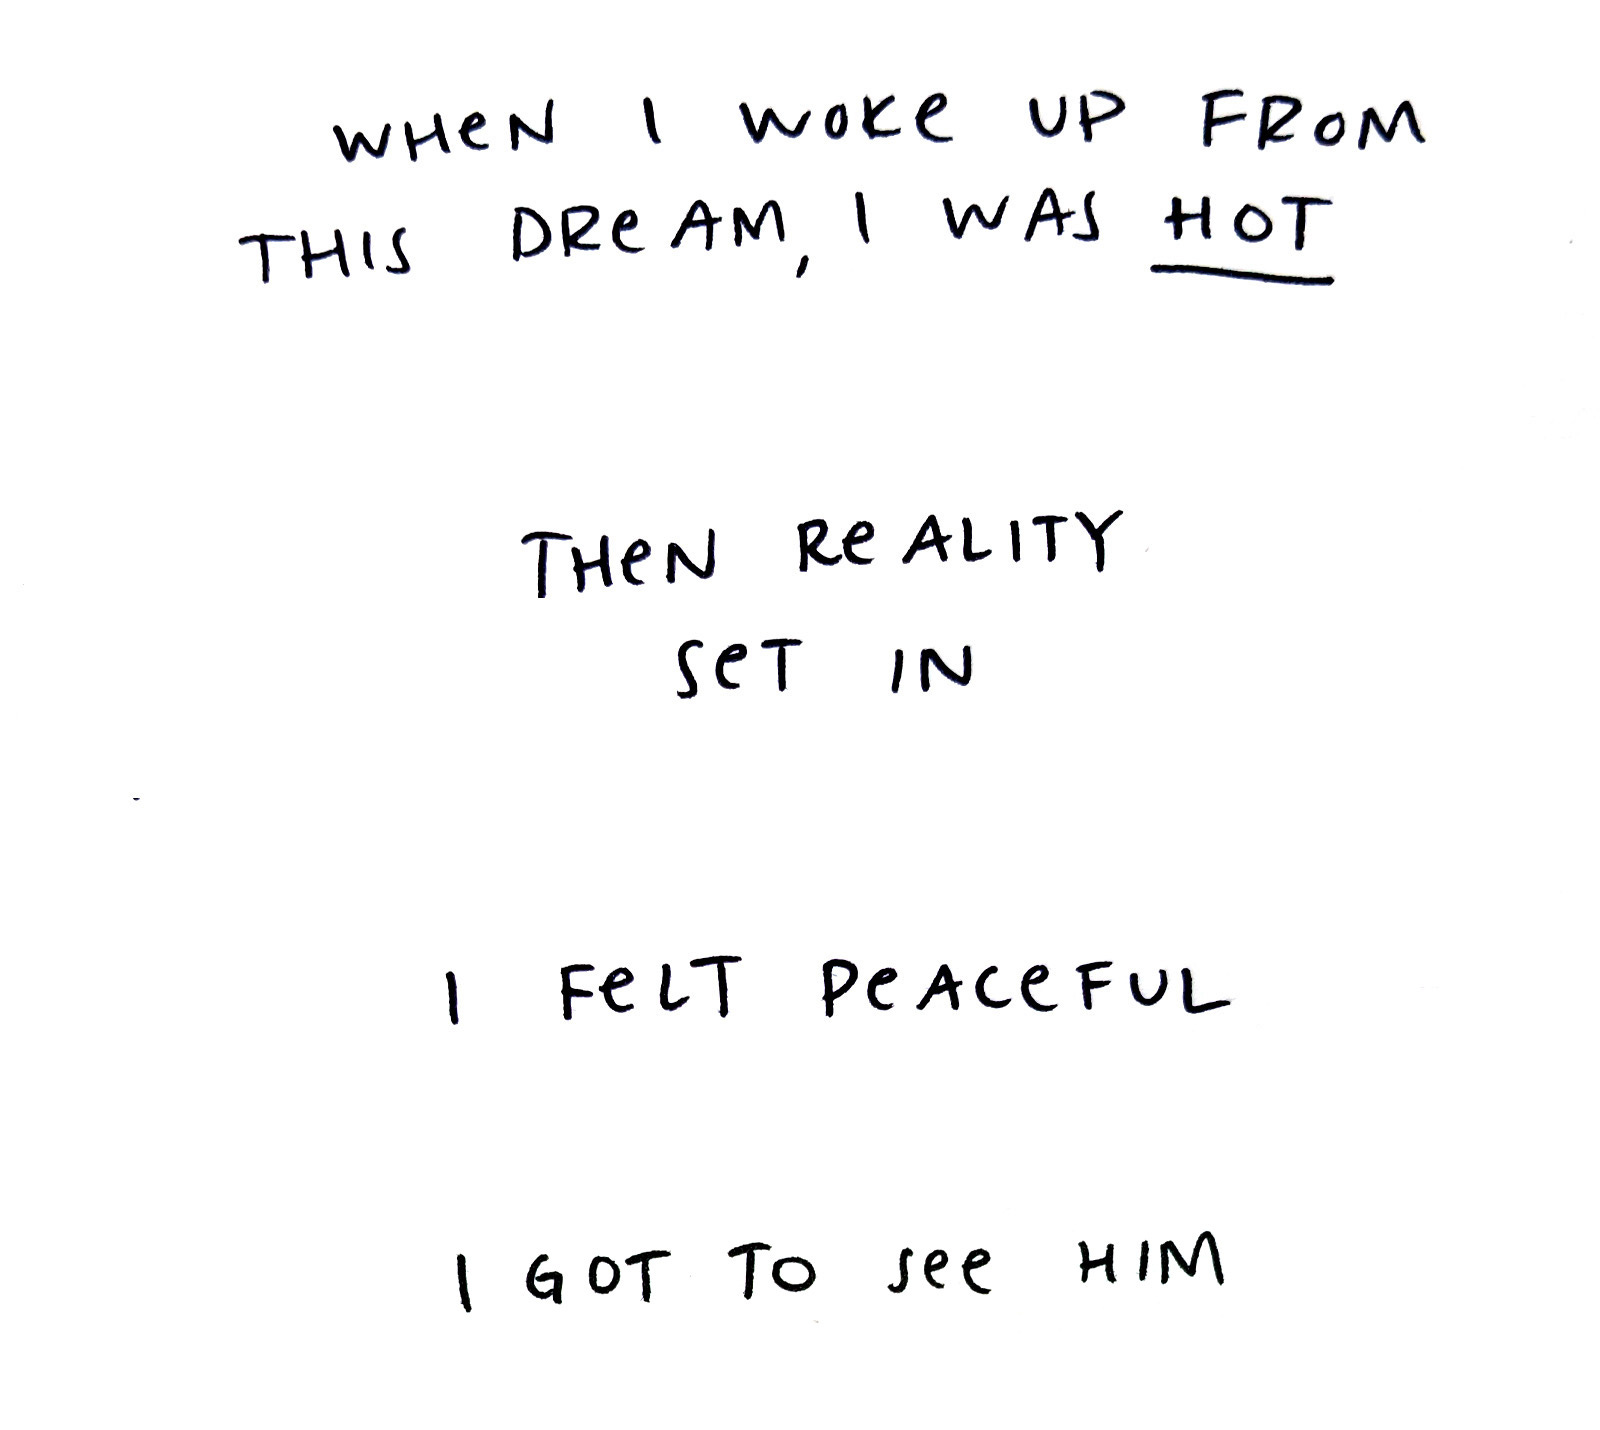 WHeN I WOKe UP FROM
THIS DReAM, I WAS HOT
THeN ReALITY
SeT IN
I FeLT PeACeFUL
I GOT TO See HIM